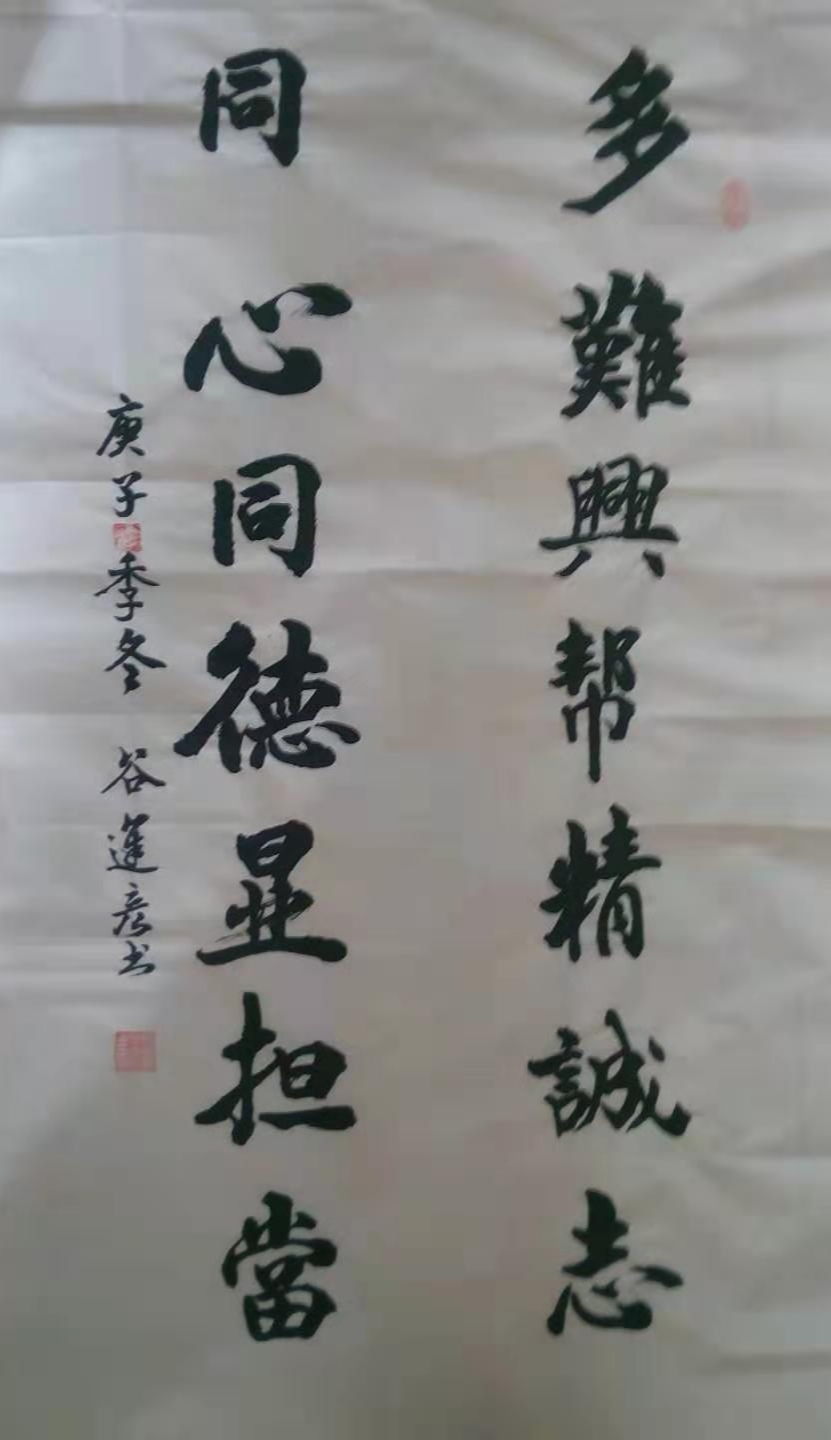 多難興帮精誠志
同心同德显担當
庚子季冬 谷運彦书